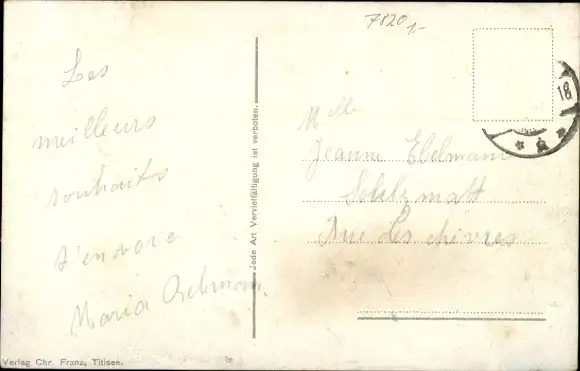 7820,-
Les
meilleurs
souhaits
t'envoie
Maria
Jede Art Vervielfältigung ist verboten.
18
Melle
Jeanne Ebelmann
Soultzmatt
Rue des chèvres
Verlag Chr. Franz, Titisee.